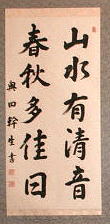 山水有清音
春秋多佳日
奥田幹生書